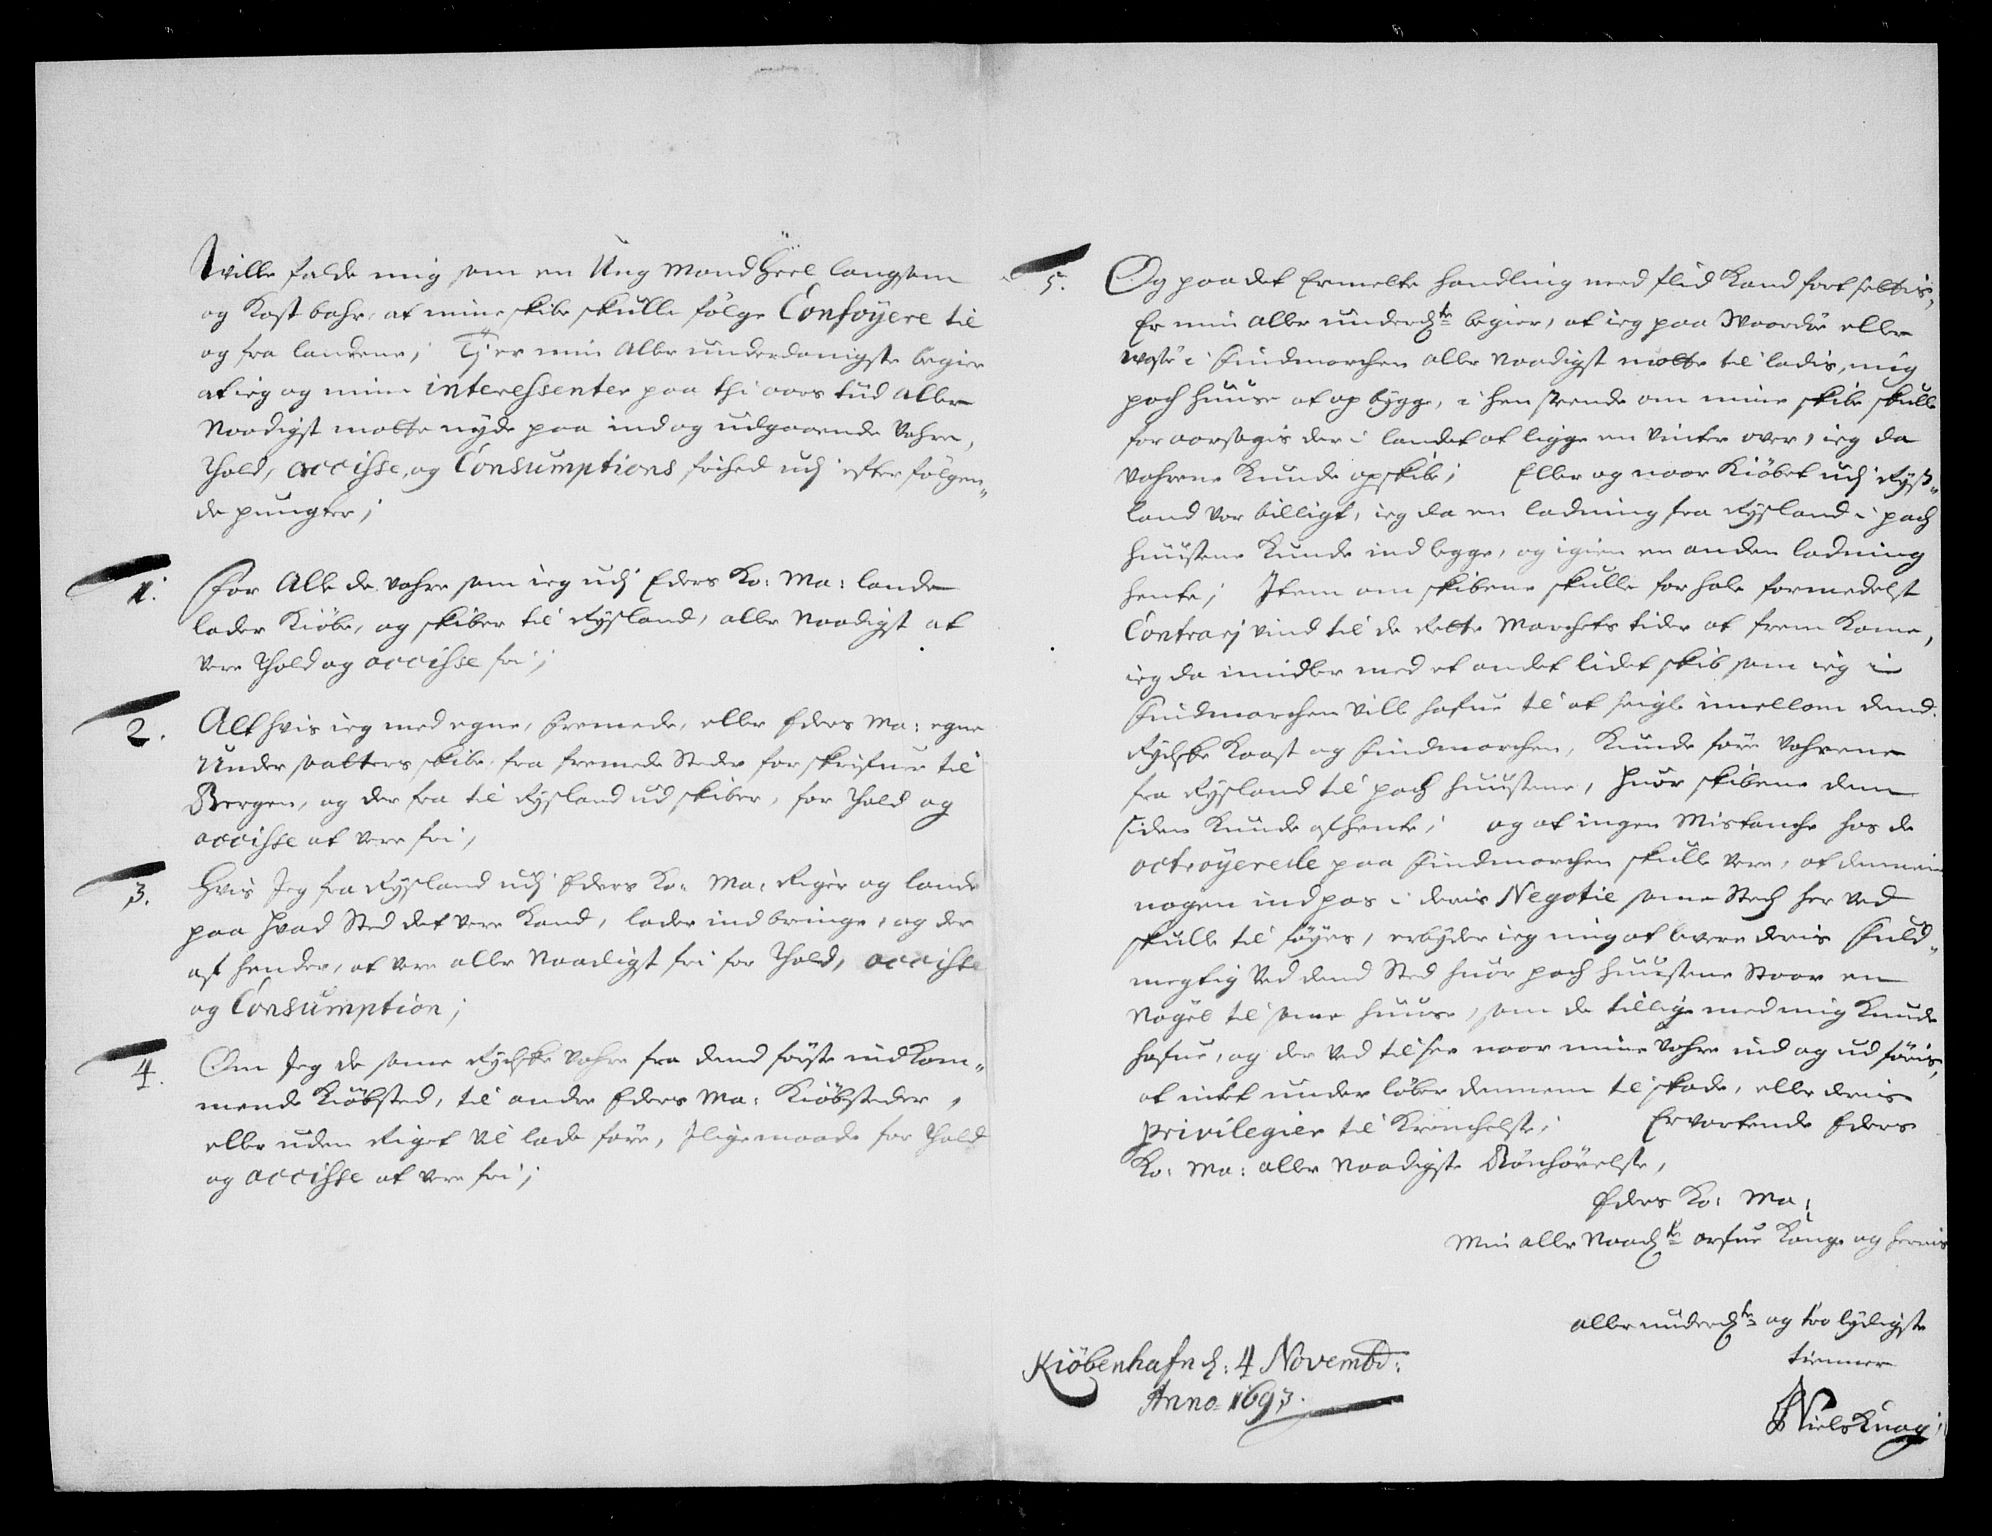 wille falde mig som en Ung Mand heel langsom
og Kostbahr, at mine skibe skulle følge Confoyere til
og fra landene; Thj er min Aller underdanigste begier
at ieg og mine interessenter paa thi aars tiid aller
Naadigst motte nyde paa ind og udgaaende Vahre,
Thold, accisse, og Consumptions frihed udj efterfølgen„
de pungter;
1. For Alle de Vahre som ieg udj Eders Ko: Ma: lande
lader Kiøbe, og skiber til Rysland, aller Naadigst at
vere Thold og accisse fri;
2. Alt hvis ieg med egne, fremede, eller Eders Ma: egne
Undersaatters skibe, fra fremede Steder forskrifuer til
Bergen, og der fra til Rysland udskiber, for Thold og
accisse at vere fri;
3. Hvis Jeg fra Rysland udj Eders Ko: Ma: Riger og lande
paa hvad Sted det vere Kand, lader indbringe, og der
afhender, at vere aller Naadigst fri for Thold, accisse
og Consumption;
4. Om Jeg de same Rydske Vahre fra dend første indkom„
mende Kiøbsted, til andre Eders Ma: Kiøbsteder,
eller uden Riget vil lade føre, Jligemaade for Thold
og accisse at vere fri;
5. Og paa det Ermelte handling med flid Kand fortsettis,
Er min aller underdte begier, at ieg paa Waardø eller
wasø i Findmarchen aller Naadigst motte til ladis, mig
pach huuse at opbygge, i hen seende om mine skibe skulle
foraarsagis der i landet at ligge en Vinter over, ieg da
Vahrene Kunde opskibe; Eller og naar Kiøbet udj Rys„
land var billigt, ieg da en ladning fra Rysland i pach
huusene Kunde indlegge, og igien en anden ladning
hente; Item om skibene skulle forhale formedelst
Contrarj vind til de Rette Marchets tider at frem Kome,
ieg da imidler med et andet lidet skib som ieg i
Findmarchen vill hafue til at seigle imellom dend
Rydske Kaast og Findmarchen, Kunde føre Vahrene
fra Rysland til pach huusene, huor skibene dem
siden Kunde afhente; og at ingen Mistanche hos de
octroyerede paa Findmarchen skulle vere, at dennem
nogen indpas i deris Negotie same Stech her ved
skulle tilføyes, erbyder ieg mig at levere deris Fuld„
megtig ved dend Sted huor pach huusene Staar en
Nøgel til same huuse, som de tillige med mig Kunde
hafue, og der ved tilsee naar mine Vahre ind og ud føris,
at intet under løber dennem til skade, eller deris
privilegier til Krenchelse; Ervartende Eders
Ko: Ma: aller Naadigste Bønhørelse,
Eders Ko: Ma:
Min aller Naadte arfue Konge og herris
aller underdte og tro lydigste
tienner
Kiøbenhafn d: 4 Novembr:
Anno 1693.
Niels Knag